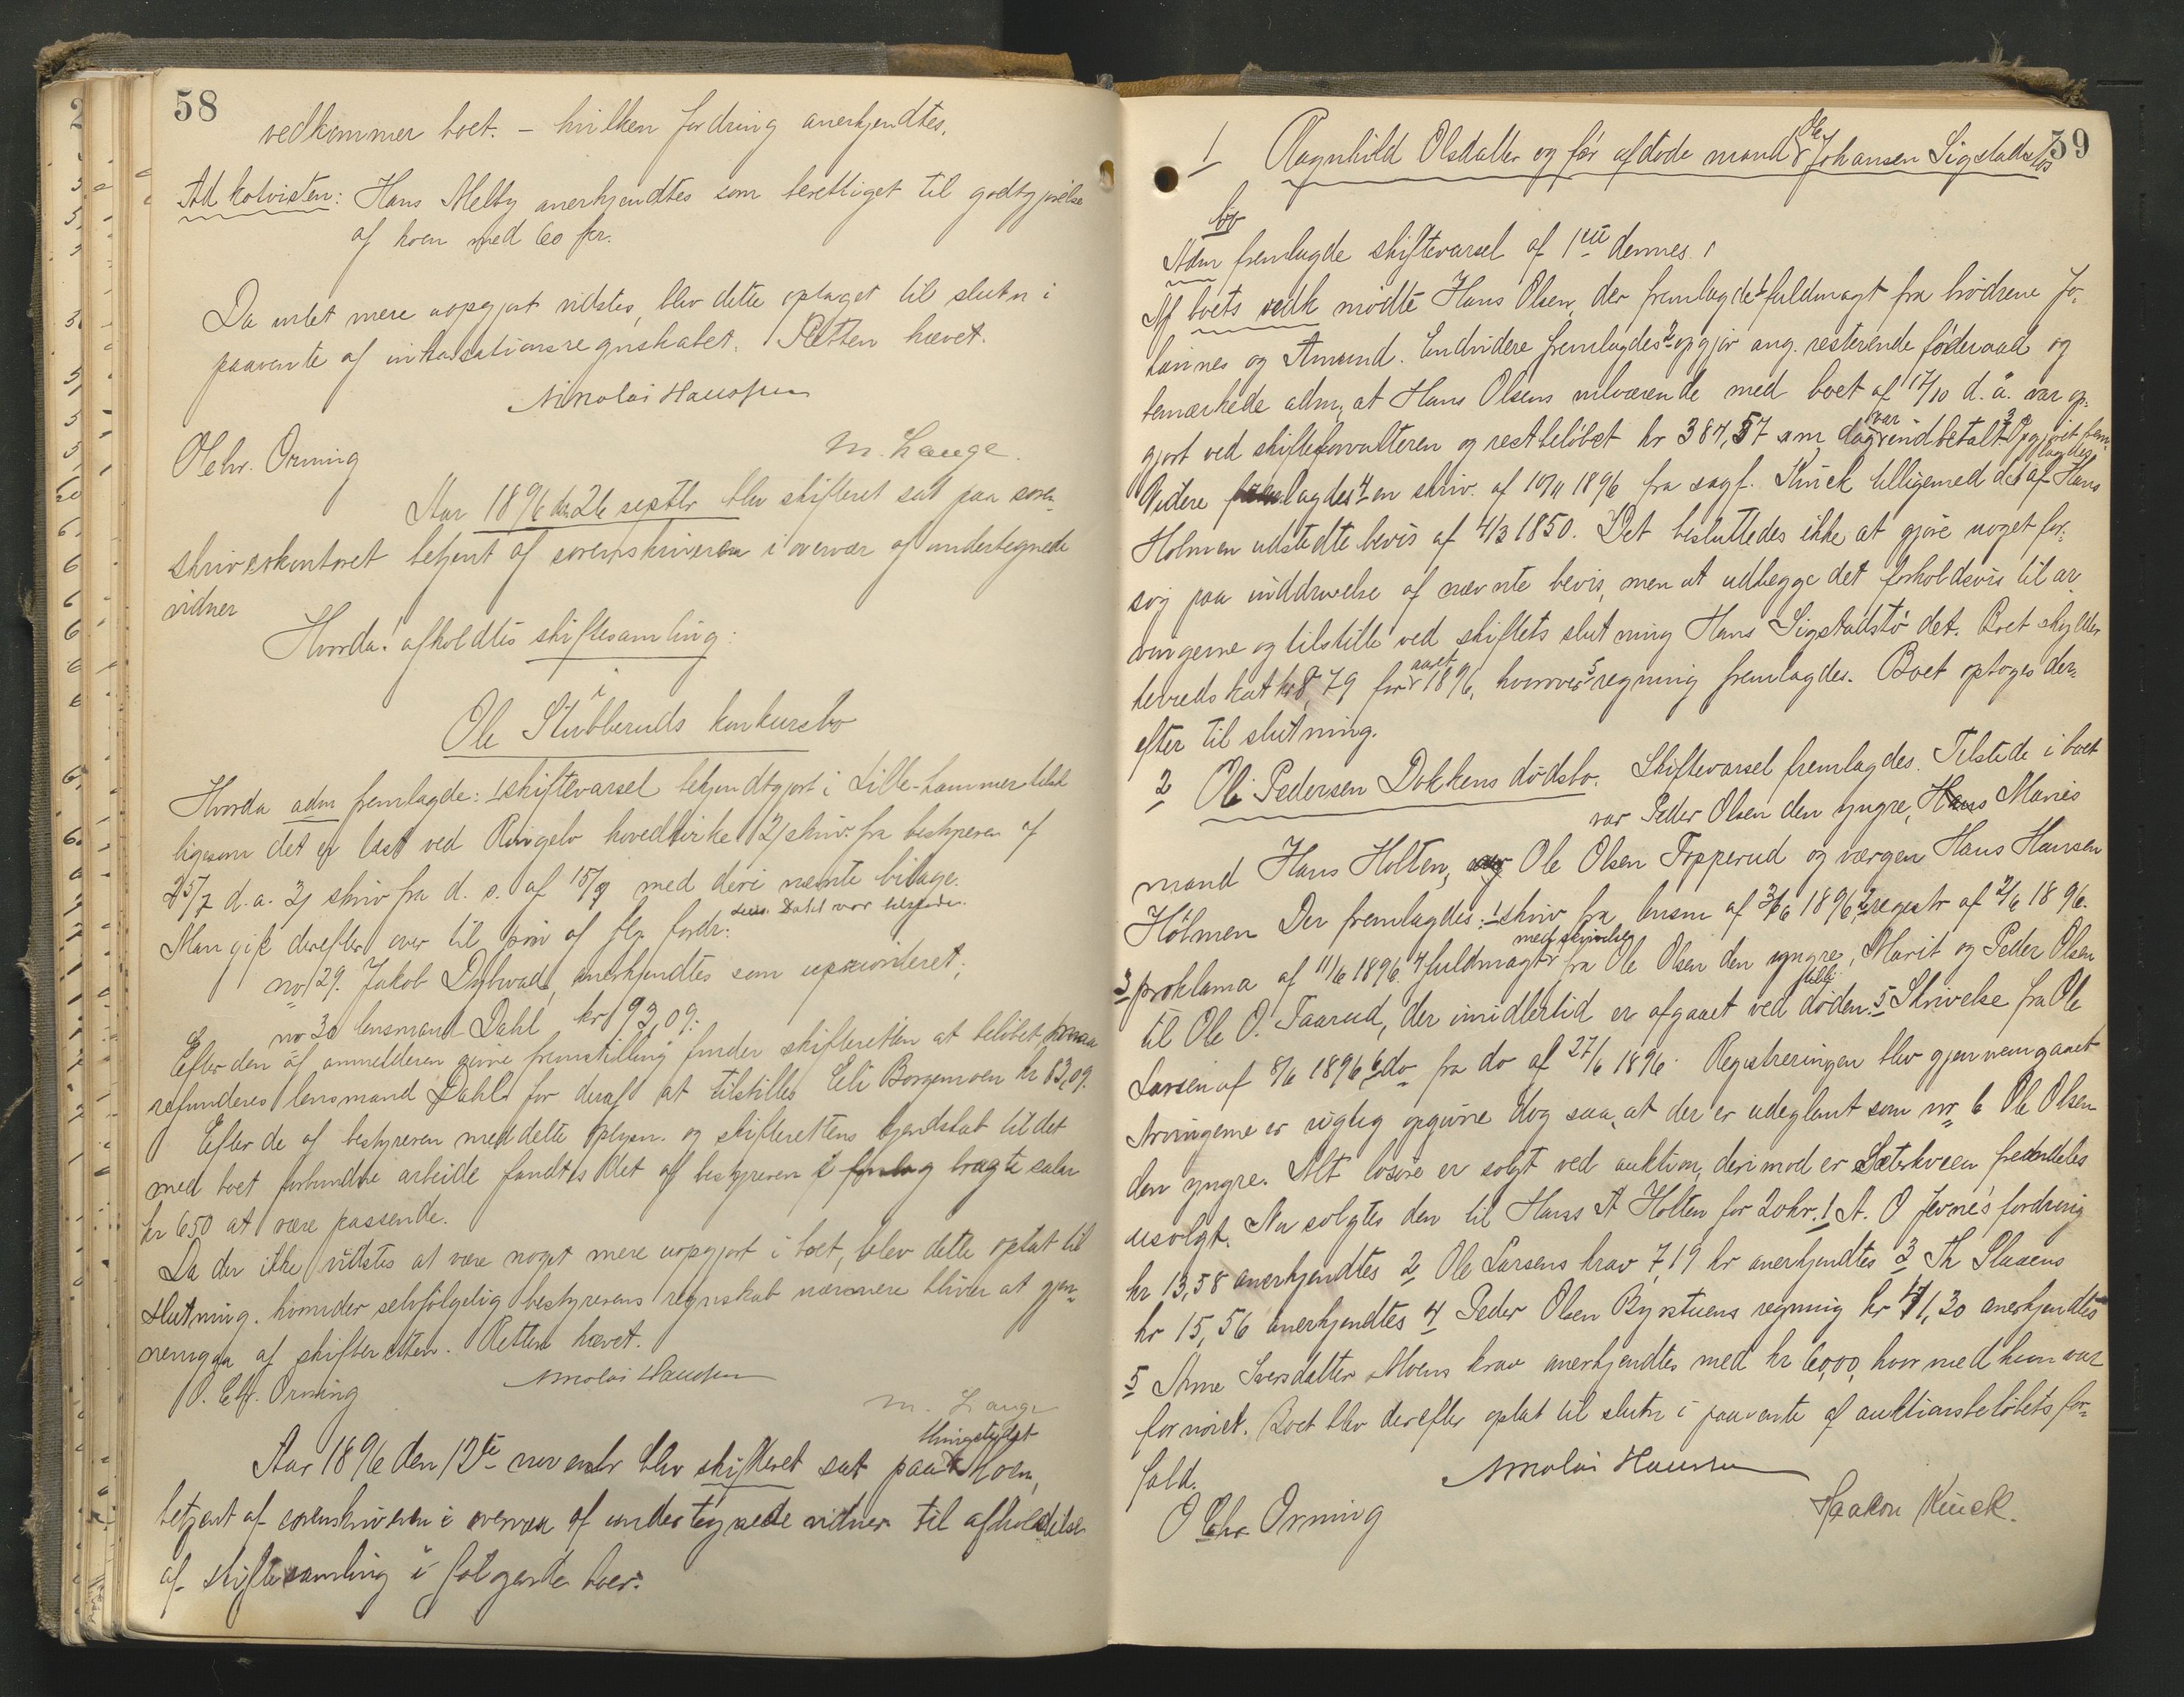 58
vedkommer boet. – hvilken fordring anerkjendtes.
Ad kotvisten: Hans Melby anerkjendtes som berettiget til godtgjørelse
af koen med 60 kr.
Da intet mere uopgjort vidstes, blev dette optaget til slutn i
paavente af inkassationsregnskabet. Retten hævet.
Nikolai Hanssen
Ole Chr. Orning
M. Lange.
Aar 1896 den 26 septbr blev skifteret sat paa soren-
skriverkontoret betjent af sorenskriveren i overvær af undertegnede
vidner
Hvorda! afholdtes skiftesamling:
i
Ole Stubberuds konkursbo
Hvorda adm fremlagde: 1 skiftevarsel bekjendtgjort i Lille-hammer tilsk
ligesom det er læst ved Ringebo hovedkirke 2) skriv. fra bestyreren af
25/7 d.a. 3) skriv fra d. s. af 15/9 med deri nævnte bilage.
Man gik derefter over til prøv af flg. fordr: Lensm. Dahl var tilstede.
no 29. Jakob Dybwad, anerkjendtes som uprioriteret;
no 30 lensmand Dahl kr 93,09:
Efter den af anmelderen givne fremstilling finder skifteretten at beløbet maa
refunderes lensmand Dahl for deraf at tilstilles Eli Borgemoen kr 83,09.
Efter de af bestyreren meddelte oplysn. og skifterettens kjendskab til det
med boet forbundne arbeide fandtes det af bestyreren i forslag bragte salær
kr 650 at være passende.
Da der ikke vidstes at være noget mere uopgjort i boet, blev dette optat til
slutning. hvorunder selvfølgelig bestyrerens regnskab nærmere bliver at gjen-
nemgaa af skifteretten. Retten hævet.
O. Chr. Orning
Nikolai Hanssen
M. Lange
Aar 1896 den 12te novembr blev skifteret sat paa thingstedet Moen,
betjent af sorenskriveren i overvær af undertegnede vidner til afholdelse
af skiftesamling i følgende boer:
59
1 Ragnhild Olsdatter og før afdøde mand Ole Johansen Sigstadstøs
bo
Adm fremlagde skiftevarsel af 1ste dennes.
Af boets vedk mødte Hans Olsen, der fremlagde 1 fuldmagt fra brødrene Jo-
hannes og Amund. Endvidere fremlagdes 2 opgjør ang. resterende føderaad og
bemærkede adm, at Hans Olsens mlværende med boet af 17/10 d. å. var op-
gjort ved skifteforvalteren og restbeløbet kr 384,57 sm. dag var indbetalt. 3 Opgjøret frem-
lagdes.
Videre fremlagdes 4 en skriv. af 10/11 1896 fra sagf. Kinck tilligemed det af Hans
Holmen udstedte bevis af 4/3 1850. Det besluttedes ikke at gjøre noget for-
søg paa inddrivelse af nævnte bevis, men at udlægge det forholdsvis til ar-
vingerne og tilstille ved skiftets slutning Hans Sigstadstø det. Boet skylder
herredskat kr 8,79 for aaret 1896, hvorover 5 regning fremlagdes. Boet optoges der-
efter til slutning.
2 Ole Pedersen Dokkens dødsbo. Skiftevarsel fremlagdes. Tilstede i boet
var Peder Olsen den yngre, Maries
mand Hans Holten, Ole Olsen Topperud og værgen Hans Hansen
Holmen Der fremlagdes: 1 skriv fra lensm af 3/6 1896, 2 registr af 2/6 1896.
3 proklama af 11/6 1896. 4 fuldmagt med skrivelse fra Ole Olsen den yngre, Marit og Peder Olsen
til Ole O. Taarud, der imidlertid er afgaaet ved døden. 5 Skrivelse fra Ole
Larsen af 8/6 1896 6 do fra do af 27/6 1896. Registreringen blev gjennemgaaet
Arvingerne er rigtig opgivne dog saa, at der er udeglemt som no 6 Ole Olsen
den yngre. Alt løsøre er solgt ved auktion, derimod er Sæterkveen fremdeles
usolgt. Nu solgtes den til Hans A Holten for 20 kr. 1 A. O Jevne's fordring
kr 13,58 anerkjendtes 2 Ole Larsens krav 7,19 kr anerkjendtes 3 Th Slaaens
kr 15,56 anerkjendtes 4 Peder Olsen Byrstuens regning kr 11,30 anerkjendtes
5 Anne Iversdatter Moens krav anerkjendtes med kr 60,00, hvormed hun var
fornøiet. Boet blev derefter optat til slutn i paavente af auktionsbeløbets for-
fald.
Nikolai Hanssen
O Chr Orning
Haakon Kinck.